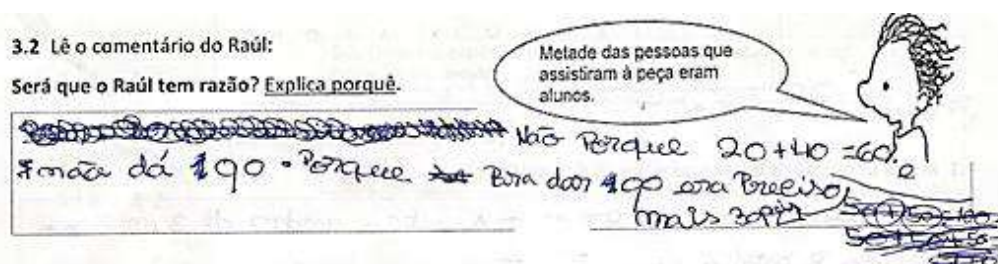 3.2 Lê o comentário do Raúl:
Será que o Raúl tem razão? Explica porquê.
Metade das pessoas que
assistiram à peça eram
alunos.
Não Porque 20+40=60. e
não dá 90. Porque Para dar era Preciso
mais 30